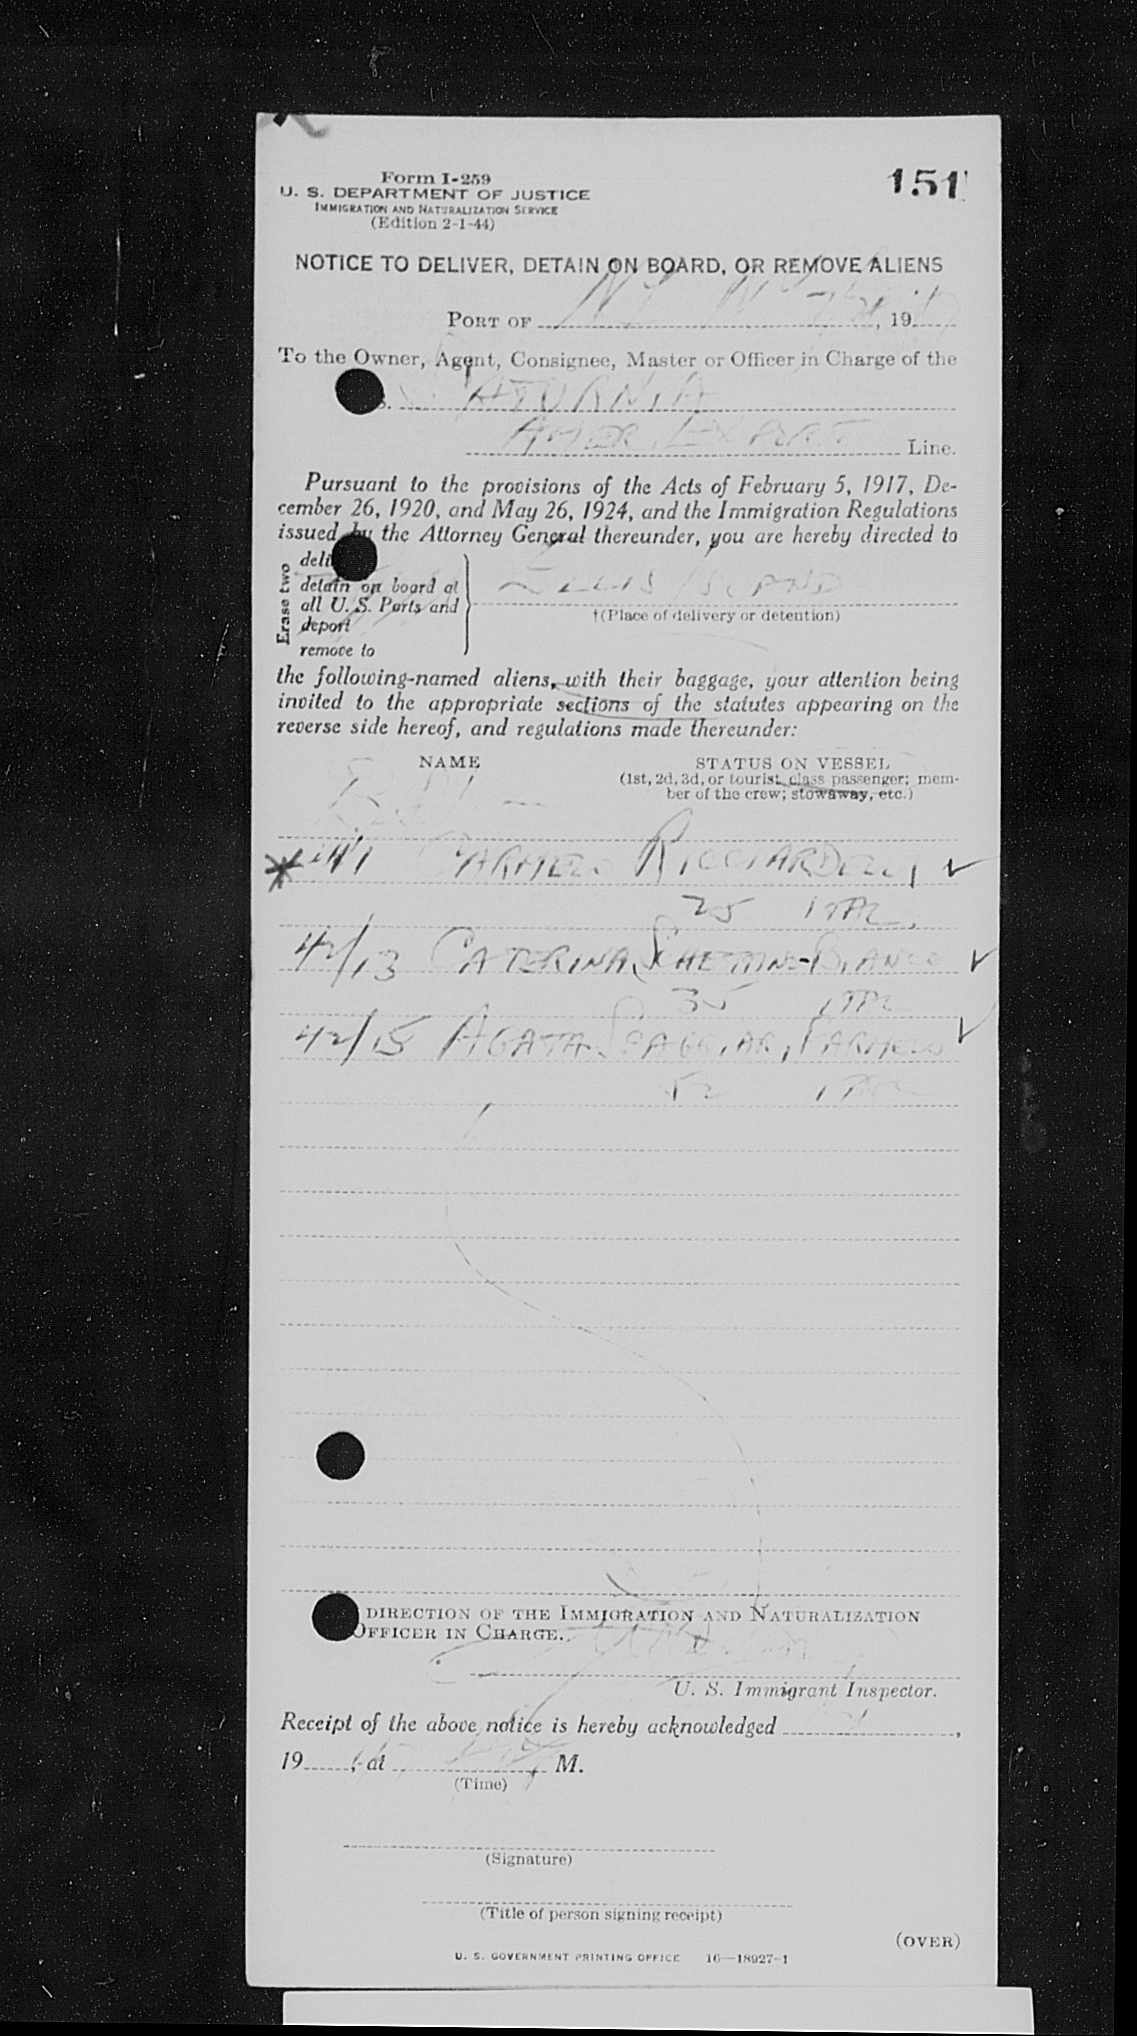 Form I-259
151
U. S. DEPARTMENT OF JUSTICE
IMMIGRATION AND NATURALIZATION SERVICE
(Edition 2-1-44)
NOTICE TO DELIVER, DETAIN ON BOARD, OR REMOVE ALIENS
PORT OF N Y , 19
To the Owner, Agent, Consignee, Master or Officer in Charge of the
S. SATURNIA
AMER. EXPORT Line.
Pursuant to the provisions of the Acts of February 5, 1917, De-
cember 26, 1920, and May 26, 1924, and the Immigration Regulations
issued by the Attorney General thereunder, you are hereby directed to
Erase two
deli
detain on board at
all U. S. Ports and
deport
remove to
ELLIS ISLAND
†(Place of delivery or detention)
the following-named aliens, with their baggage, your attention being
invited to the appropriate sections of the statutes appearing on the
reverse side hereof, and regulations made thereunder:
NAME STATUS ON VESSEL
(1st, 2d, 3d, or tourist class passenger; mem-
ber of the crew; stowaway, etc.)
CARMELO RICCIARDELLI ✓
25 ITAL.
42/13 CATERINA SCHETTINE-BIANCO ✓
35 ITAL
42/15 AGATA CARMELO ✓
52 ITAL
DIRECTION OF THE IMMIGRATION AND NATURALIZATION
OFFICER IN CHARGE.
U. S. Immigrant Inspector.
Receipt of the above notice is hereby acknowledged ,
19 , at M.
(Time)
(Signature)
(Title of person signing receipt)
(OVER)
U. S. GOVERNMENT PRINTING OFFICE 16—18927-1